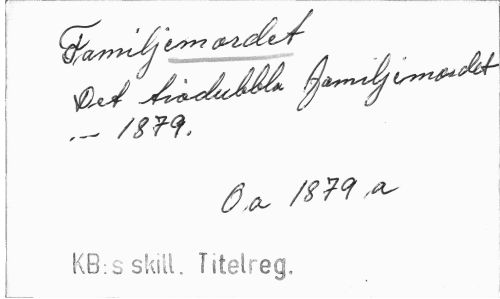 Familjemordet
Det tiodubbla familjemordet
... — 1879.
O.a 1879.a
KB:s skill. Titelreg.